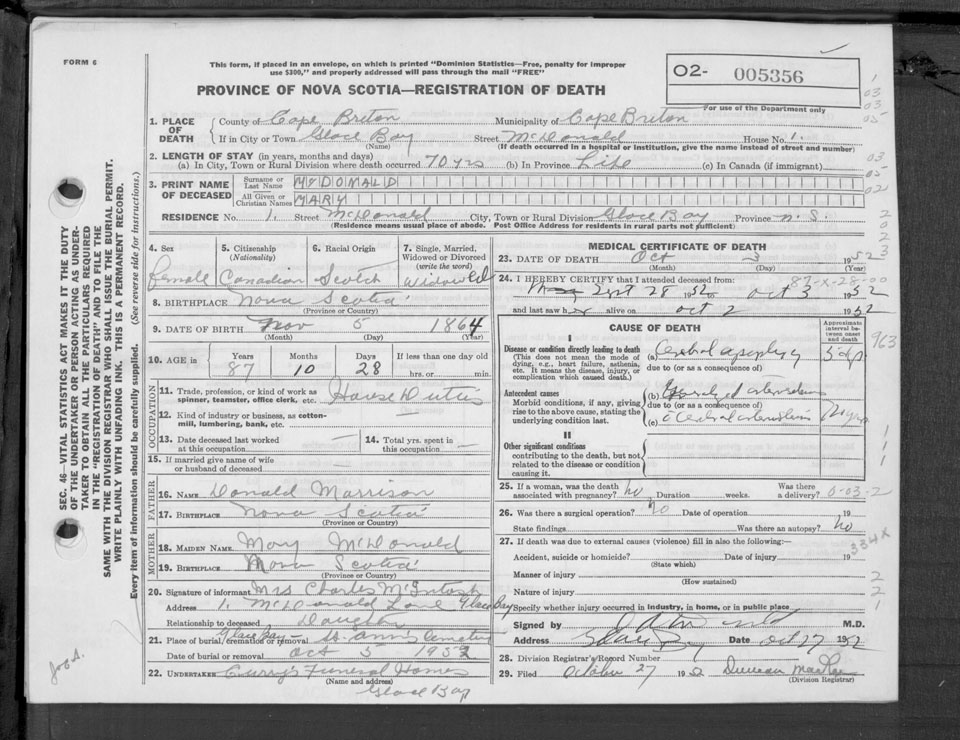 FORM 6
This form, if placed in an envelope, on which is printed "Dominion Statistics—Free, penalty for improper
use $300," and properly addressed will pass through the mail "FREE"
O2- 005356
For use of the Department only
PROVINCE OF NOVA SCOTIA—REGISTRATION OF DEATH
SEC. 46—VITAL STATISTICS ACT MAKES IT THE DUTY
OF THE UNDERTAKER OR PERSON ACTING AS UNDER-
TAKER TO OBTAIN ALL THE PARTICULARS REQUIRED
IN THE "REGISTRATION OF DEATH" AND TO FILE THE
SAME WITH THE DIVISION REGISTRAR WHO SHALL ISSUE THE BURIAL PERMIT.
WRITE PLAINLY WITH UNFADING INK. THIS IS A PERMANENT RECORD.
Every item of information should be carefully supplied. (See reverse side for instructions.)
1. PLACE OF DEATH
County of Cape Breton Municipality of Cape Breton
If in City or Town Glace Bay Street McDonald House No. 1.
(Name) (If death occurred in a hospital or institution, give the name instead of street and number)
2. LENGTH OF STAY (in years, months and days)
(a) In City, Town or Rural Division where death occurred 70 yrs (b) In Province Life (c) In Canada (if immigrant)
3. PRINT NAME OF DECEASED
Surname or Last Name McDONALD
All Given or Christian Names MARY
RESIDENCE No. 1. Street McDonald City, Town or Rural Division Glace Bay Province N.S.
(Residence means usual place of abode. Post Office Address for residents in rural parts not sufficient)
4. Sex female
5. Citizenship (Nationality) Canadian
6. Racial Origin Scotch
7. Single, Married, Widowed or Divorced (write the word) Widowed
8. BIRTHPLACE Nova Scotia
(Province or Country)
9. DATE OF BIRTH Nov 5 1864
(Month) (Day) (Year)
10. AGE in Years 87 Months 10 Days 28 If less than one day old
hrs. or min.
OCCUPATION
11. Trade, profession, or kind of work as
spinner, teamster, office clerk, etc. House Duties
12. Kind of industry or business, as cotton-
mill, lumbering, bank, etc. —
13. Date deceased last worked
at this occupation —
14. Total yrs. spent in
this occupation —
15. If married give name of wife
or husband of deceased —
FATHER
16. NAME Donald Morrison
17. BIRTHPLACE Nova Scotia
(Province or Country)
MOTHER
18. MAIDEN NAME Mary McDonald
19. BIRTHPLACE Nova Scotia
(Province or Country)
20. Signature of informant Mrs Charles McIntosh
Address 1. McDonald Lane Glace Bay
Relationship to deceased Daughter
21. Place of burial, cremation or removal Glace Bay — St. Anns Cemetery
Date of burial or removal Oct 5 1952
22. UNDERTAKER Curry's Funeral Home
(Name and address)
Glace Bay
MEDICAL CERTIFICATE OF DEATH
23. DATE OF DEATH Oct 3 1952
(Month) (Day) (Year)
87-X-28-00
24. I HEREBY CERTIFY that I attended deceased from:
Sept 28 1952 to Oct 3 1952
and last saw her alive on Oct 2 1952
CAUSE OF DEATH
Approximate interval between onset and death
I
Disease or condition directly leading to death
(This does not mean the mode of
dying, e.g., heart failure, asthenia,
etc. It means the disease, injury, or
complication which caused death.)
(a) Cerebral apoplexy 5 dys
due to (or as a consequence of)
Antecedent causes
Morbid conditions, if any, giving
rise to the above cause, stating the
underlying condition last.
(b)
due to (or as a consequence of)
(c)
II
Other significant conditions
contributing to the death, but not
related to the disease or condition
causing it.
25. If a woman, was the death
associated with pregnancy? no Duration weeks. Was there
a delivery? 0-03-2
26. Was there a surgical operation? no Date of operation 19
State findings Was there an autopsy? no
27. If death was due to external causes (violence) fill in also the following:—
Accident, suicide or homicide? Date of injury 19
(State which)
Manner of injury
(How sustained)
Nature of injury
Specify whether injury occurred in industry, in home, or in public place
Signed by M.D.
Address Glace Bay Date Oct 27 1952
28. Division Registrar's Record Number
29. Filed October 27 1952 Duncan
(Division Registrar)
963
334X